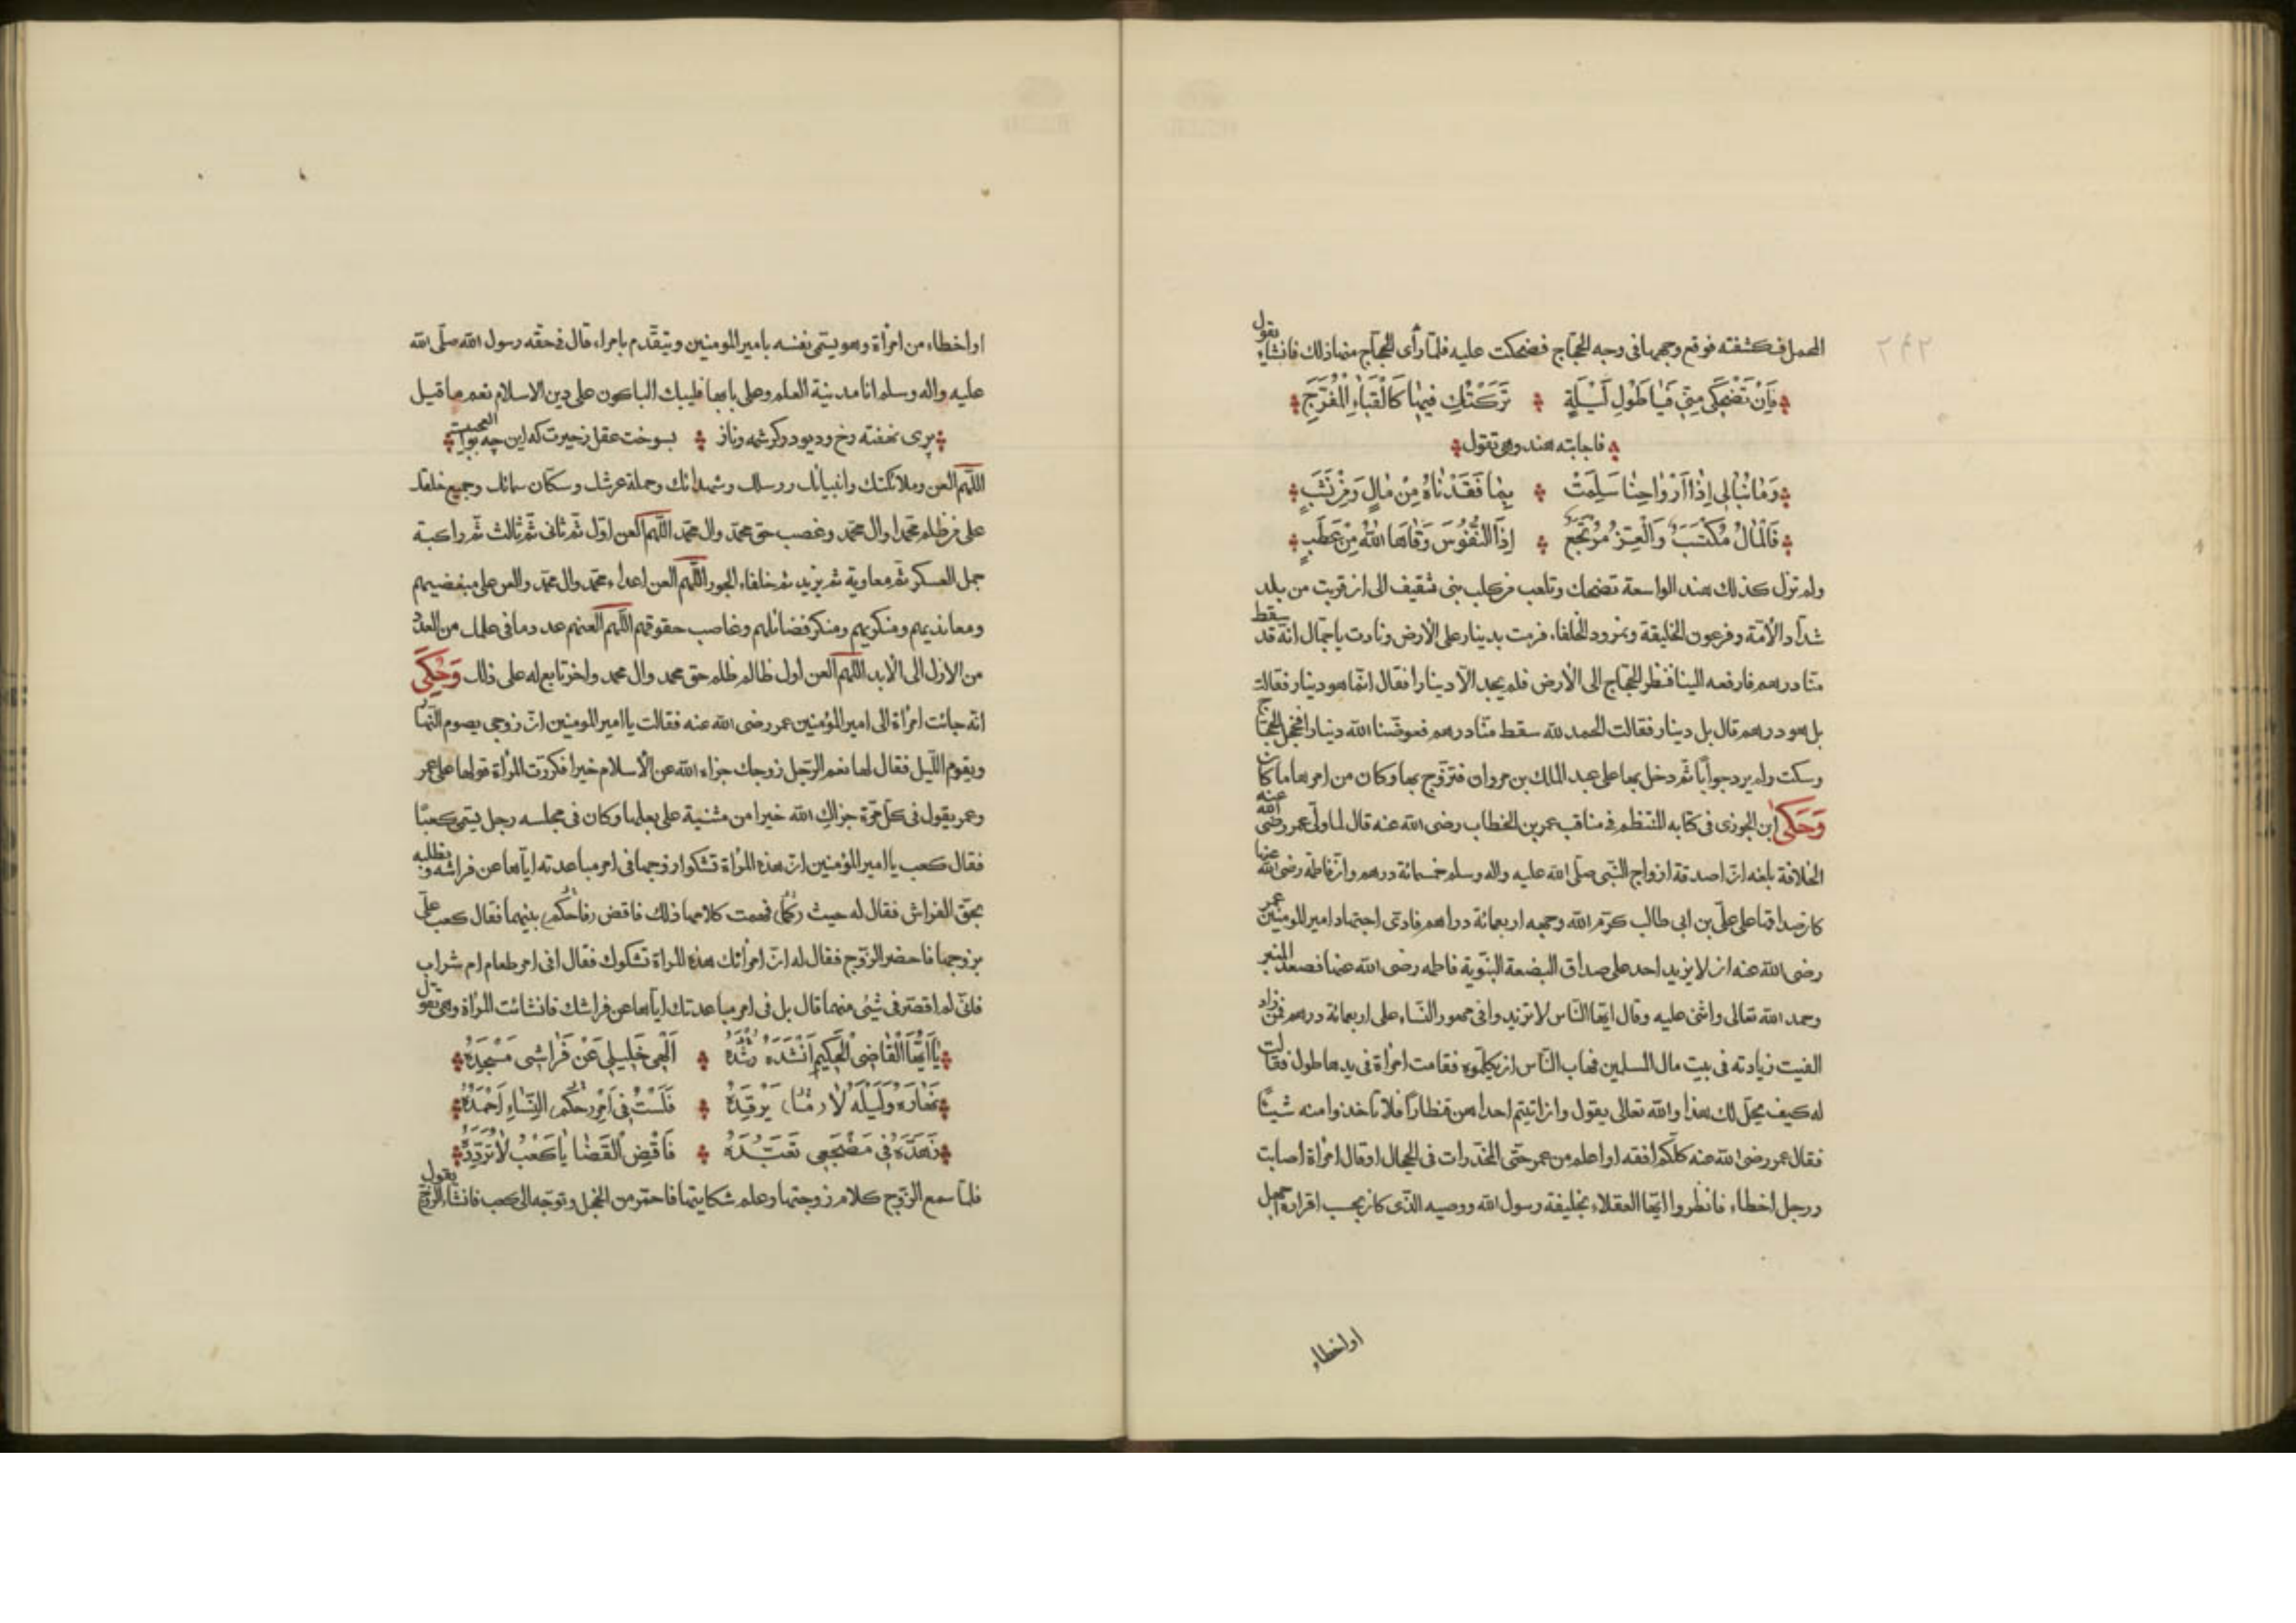 المحمل فكشفته فوقع وجهها فى وجه الحجّاج فضحكت عليه فلمّا رأى الحجّاج منها ذلك فانشاء يقول
فان تضحكى منّى فيا طول ليلة تركتك فيها كالقباء المفرّج
فاجابته هند وهى تقول
وما نبالى اذا ارواحنا سلمت بما فقدناه من مال ومن نشب
فالمال مكتسب والعزّ مرتجع اذا النّفوس وقاها الله من عطب
ولم تزل كذلك هند الواسعة تضحك وتلعب من كلب بنى ثقيف الى ان قربت من بلد
شدّاد الأمّة وفرعون الخليقة ونمرود الخلفاء فرمت بدينار على الأرض ونادت يا جمّال انّه قد سقط
منّا درهم فارفعه الينا فنظر الحجّاج الى الأرض فلم يجد الّا دينارا فقال انّما هو دينار فقالت
بل هو درهم قال بل دينار فقالت الحمد لله سقط منّا درهم فعوضنا الله دينارا فخجل الحجّاج
وسكت ولم يرد جوابا ثمّ دخل بها على عبد الملك بن مروان فتزوّج بها وكان من امرها ما كان
وحكى ابن الجوزى فى كتابه المنتظم فى مناقب عمر بن الخطاب رضى الله عنه قال لما ولّى عمر رضى الله عنه
الخلافة بلغه انّ اصدقة ازواج النّبى صلّى الله عليه واله وسلم خمسمائة درهم وانّ فاطمه رضى الله عنها
كان صداقها على علىّ بن ابى طالب كرّم الله وجهه اربعمائة دراهم فادّى اجتهاد امير المومنين عمر
رضى الله عنه ان لا يزيد احد على صداق البضعة النبّوية فاطمه رضى الله عنها فصعد المنبر
وحمد الله تعالى واثنى عليه وقال ايّها النّاس لا تزيدوا فى مهور النّساء على اربعمائة درهم فمن زاد
القيت زيادته فى بيت مال المسلمين فهاب النّاس ان يكلّموه فقامت امرأة فى يدها طول فقالت
له كيف يحلّ لك هذا والله تعالى يقول وان اتيتم احداهن قنطارا فلا تأخذوا منه شيئًا
فقال عمر رضى الله عنه كلّكم افقه او اعلم من عمر حتّى المخدّرات فى الحجال او قال امرأة اصابت
ورجل اخطاء فانظروا ايّها العقلاء بخليفة رسول الله ووصيه الذّى كان بحسب اقراره اجهل
او اخطاء
او اخطاء من امرأة وهو يسمّى نفسه بامير المومنين ويتقدّم بامراء قال فى حقّه رسول الله صلّى الله
عليه واله وسلم انا مدينة العلم وعلى بابها فليبك الباكون على دين الاسلام نعم ما قيل
پرى نهفته رخ وديو در كرشمه وناز بسوخت عقل زحيرت كه اين چه بوالعجبيست
اللّهم العن وملائكتك وانبيائك ورسلك وشهدائك وحملة عرشك وسكّان سمائك وجميع خلقك
على من ظلم محمّدا وال محمّد وغصب حق محمّد وال محمّد اللّهم العن اوّل ثمّ ثانى ثمّ ثالث ثمّ راكبة
جمل العسكر ثمّ معاوية ثم يزيد ثم خلفاء الجور اللّهم العن اعداء محمّد وال محمّد والعن على مبغضيهم
ومعانديهم ومنكريهم ومنكر فضائلهم وغاصب حقوقهم اللّهم العنهم عدد ما فى علمك من العدد
من الاول الى الأبد اللّهم العن اول ظالم ظلم حق محمد وال محمد واخر تابع له على ذلك وحكى
انّه جائت امرأة الى امير المؤمنين عمر رضى الله عنه فقالت يا امير المومنين انّ زوجى يصوم النّهار
ويقوم اللّيل فقال لها نعم الرّجل زوجك جزاه الله عن الأسلام خيرا فكرّرت المرأة قولها على عمر
وعمر يقول فى كلّ مرّة جزاك الله خيرا من مثنية على بعلها وكان فى مجلسه رجل يسمّى كعبًا
فقال كعب يا امير المؤمنين انّ هذه المرأة تشكوا زوجها فى امر مباعدته ايّاها عن فراشه وتطلبه
بحقّ الفراش فقال له حيث فهمت كلامها ذلك فاقض بينهما فقال كعب علىّ
بزوجها فاحضر الزّوج فقال له انّ امرأتك هذه المراة تشكوك فقال افى امر طعام ام شراب
فانّى لم اقصّر فى شيئى منهما قال بل فى امر مباعدتك ايّاها عن فراشك فانشائت المرأة وهى تقول
يا ايّها القاضى الحكيم انشده الهى خليلى عن فراشى مسجده
نهاره وليله لا يرقده فلست فى امر النّساء احمده
زهّده فى مضجعى تعبّده فاقض القضا يا كعب لا تردّده
فلمّا سمع الزّوج كلام زوجتها وعلم شكايتها فاحمّر من الخجل وتوجّه الى كعب فانشاء الزوج يقول